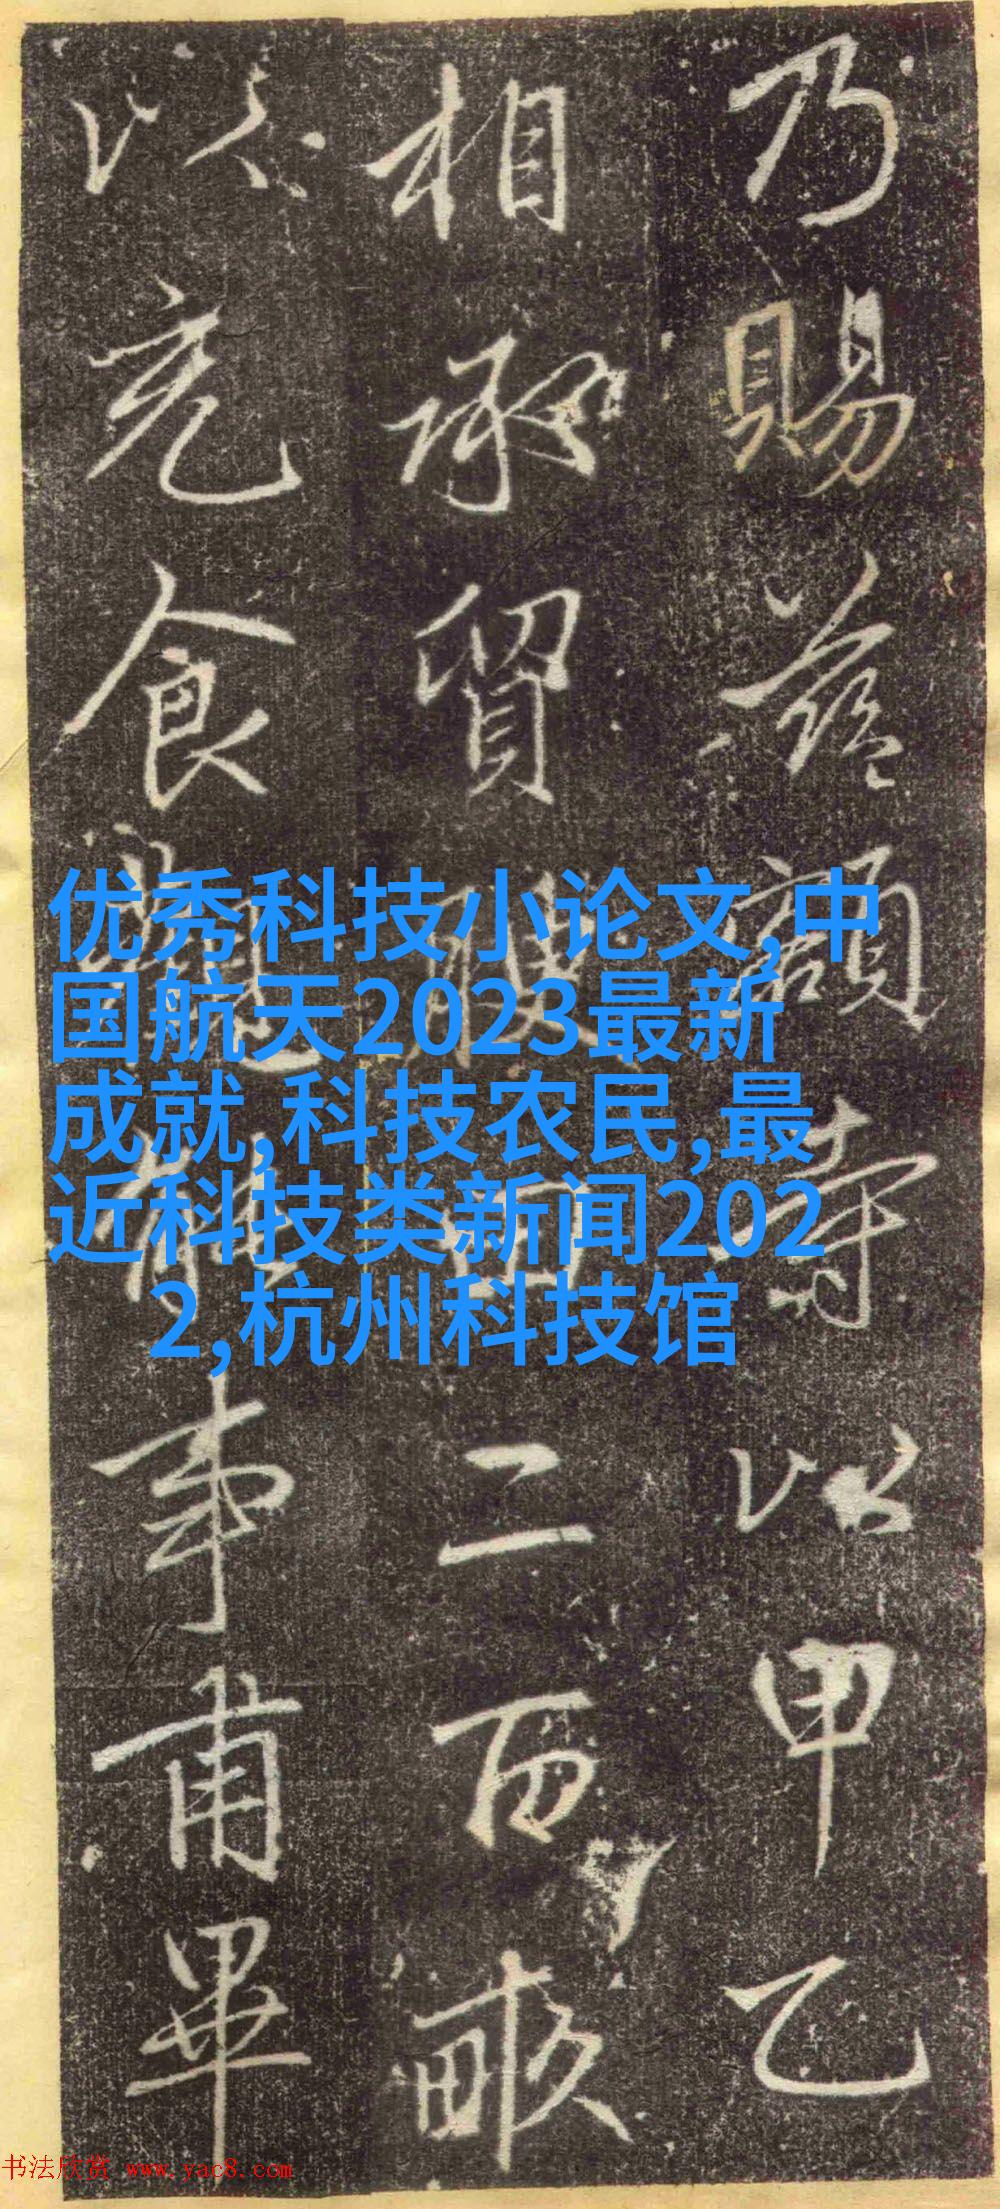 乃賜茲額寺以甲乙
相承貿腴田二百畝
以充食輪能事甫畢
优秀科技小论文,中
国航天2023最新
成就,科技农民,最
近科技类新闻202
2,杭州科技馆
书法欣赏 www.yac8.com